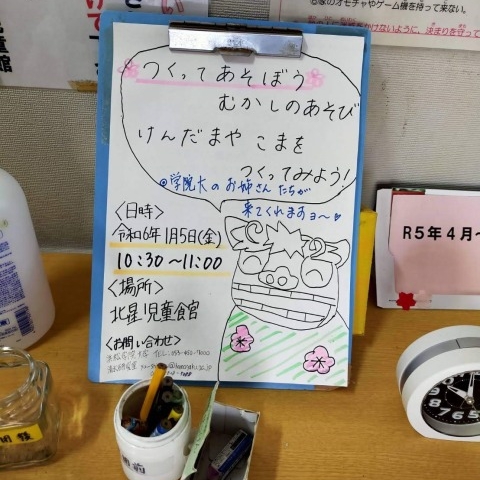 つくってあそぼう
むかしのあそび
けんだまや こまを
つくってみよう!
◎学院大のお姉さんたちが
来てくれますョ〜
〈日時〉
令和6年1月5日(金)
10:30〜11:00
〈場所〉
北星児童会館
〈お問い合わせ〉
る家のオモチャやゲーム機を持って来ない。
決まりを守って
R5年4月〜